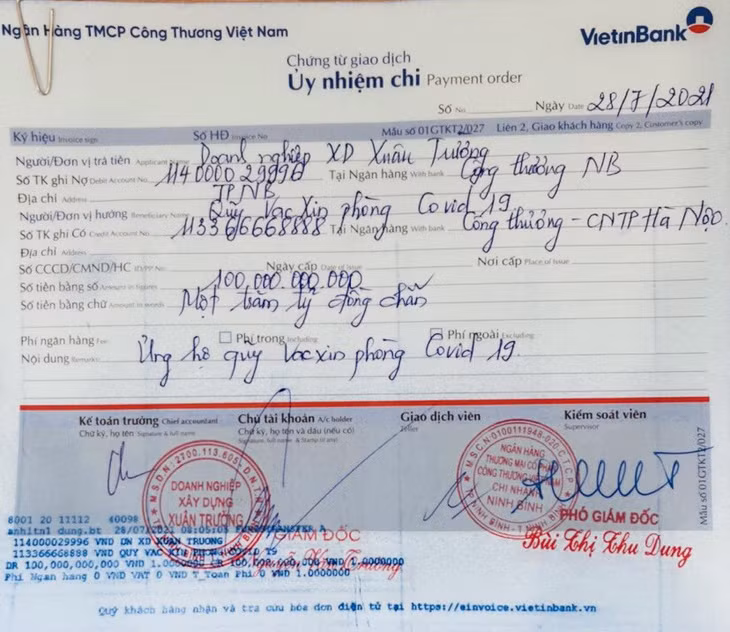 Ngân Hàng TMCP Công Thương Việt Nam
VietinBank
Chứng từ giao dịch
Ủy nhiệm chi Payment order
Số No Ngày Date 28/7/2021
Ký hiệu Invoice sign Số HĐ Invoice No Mẫu số 01GTKT2/027 Liên 2, Giao khách hàng Copy 2, Customer's copy
Người/Đơn vị trả tiền Doanh nghiệp XD Xuân Trường
Số TK ghi Nợ Debit Account No 114000029996 Tại Ngân hàng With bank Công thương NB
Địa chỉ Address TP NB
Người/Đơn vị hưởng Beneficiary Name Quỹ Vac Xin phòng Covid 19
Số TK ghi Có Credit Account No 113366668888 Tại Ngân hàng With bank Công thương - CNTP Hà Nội.
Địa chỉ Address
Số CCCD/CMND/HC Ngày cấp Date of issue Nơi cấp Place of issue
Số tiền bằng số Amount in figures 100,000,000,000
Số tiền bằng chữ Amount in words Một trăm tỷ đồng chẵn
Phí ngân hàng Fee Phí trong Including Phí ngoài Excluding
Nội dung Remarks Ủng hộ quỹ Vac xin phòng Covid 19.
Kế toán trưởng Chief accountant Chủ tài khoản A/c holder Giao dịch viên Kiểm soát viên
Chữ ký, họ tên Signature & full name Chữ ký, họ tên và dấu (nếu có) Teller Supervisor
DOANH NGHIỆP
XÂY DỰNG
XUÂN TRƯỜNG
NGÂN HÀNG
THƯƠNG MẠI CỔ PHẦN
CÔNG THƯƠNG
CHI NHÁNH
NINH BÌNH
GIÁM ĐỐC
PHÓ GIÁM ĐỐC
Bùi Thị Thu Dung
Mẫu số 01GTKT2/027
6001 20 11112 40098
anhltn1 dung.bt 28/07/2021 08:05:03
114000029996 VND DN XD XUAN TRUONG
113366668888 VND QUY VAC XIN
DR 100,000,000,000 VND 1.0000000 CR 100,000,000,000 VND 1.0000000
Phi Ngan hang 0 VND VAT 0 VND T Toan Phi 0 VND 1.0000000
Quý khách hàng nhận và tra cứu hóa đơn điện tử tại https://einvoice.vietinbank.vn